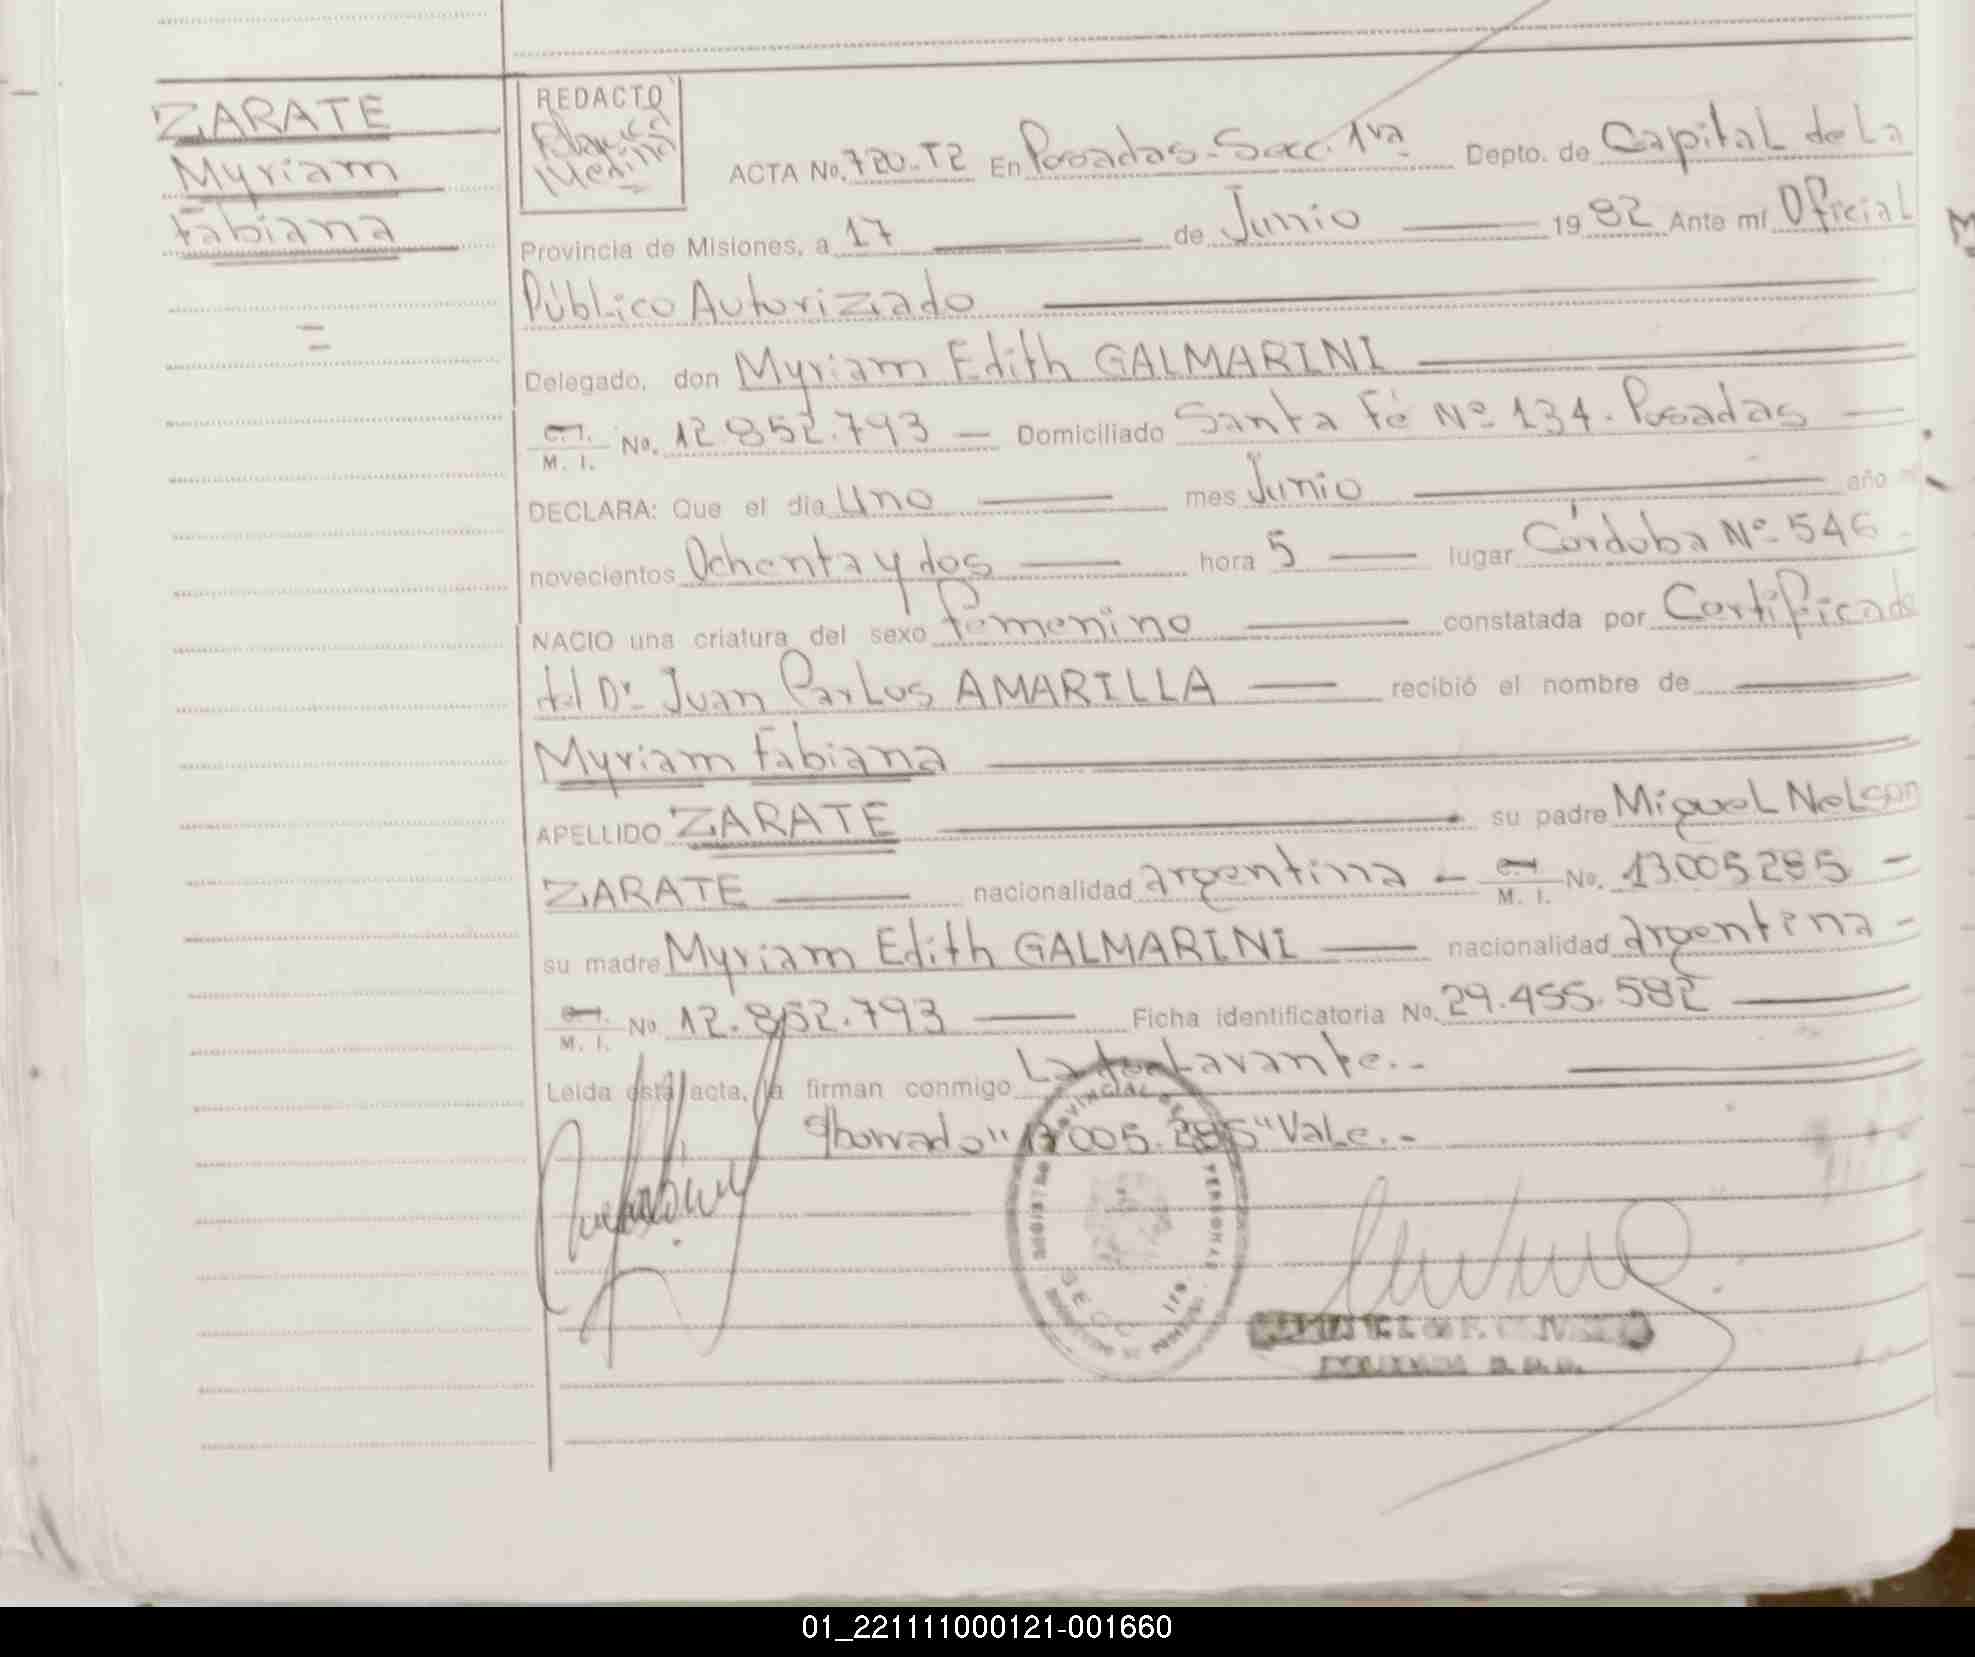 ZARATE
Myriam
Fabiana
REDACTO
Blanca
Medina
ACTA No. 720-T2 En Posadas-Secc. 1ra Depto. de Capital de La
Provincia de Misiones, a 17 de Junio 1982 Ante mí Oficial
Público Autorizado
Delegado, don Myriam Edith GALMARINI
C.I. M. I. No. 12.852.793 — Domiciliado Santa Fé Nº 134. Posadas
DECLARA: Que el día Uno mes Junio año
novecientos Ochenta y dos hora 5 lugar Córdoba Nº 546
NACIO una criatura del sexo femenino constatada por Certificado
del Dr. Juan Carlos AMARILLA recibió el nombre de
Myriam Fabiana
APELLIDO ZARATE su padre Miguel Nelson
ZARATE nacionalidad argentina — M. I. No. 13.005.285 —
su madre Myriam Edith GALMARINI nacionalidad argentina —
M. I. No. 12.852.793 Ficha identificatoria No. 29.455.582
Leída esta acta, la firman conmigo La declarante.-
Sborrado "13.005.285" Vale.-
PROVINCIAL DE
PERSONAS
SECC.
01_221111000121-001660